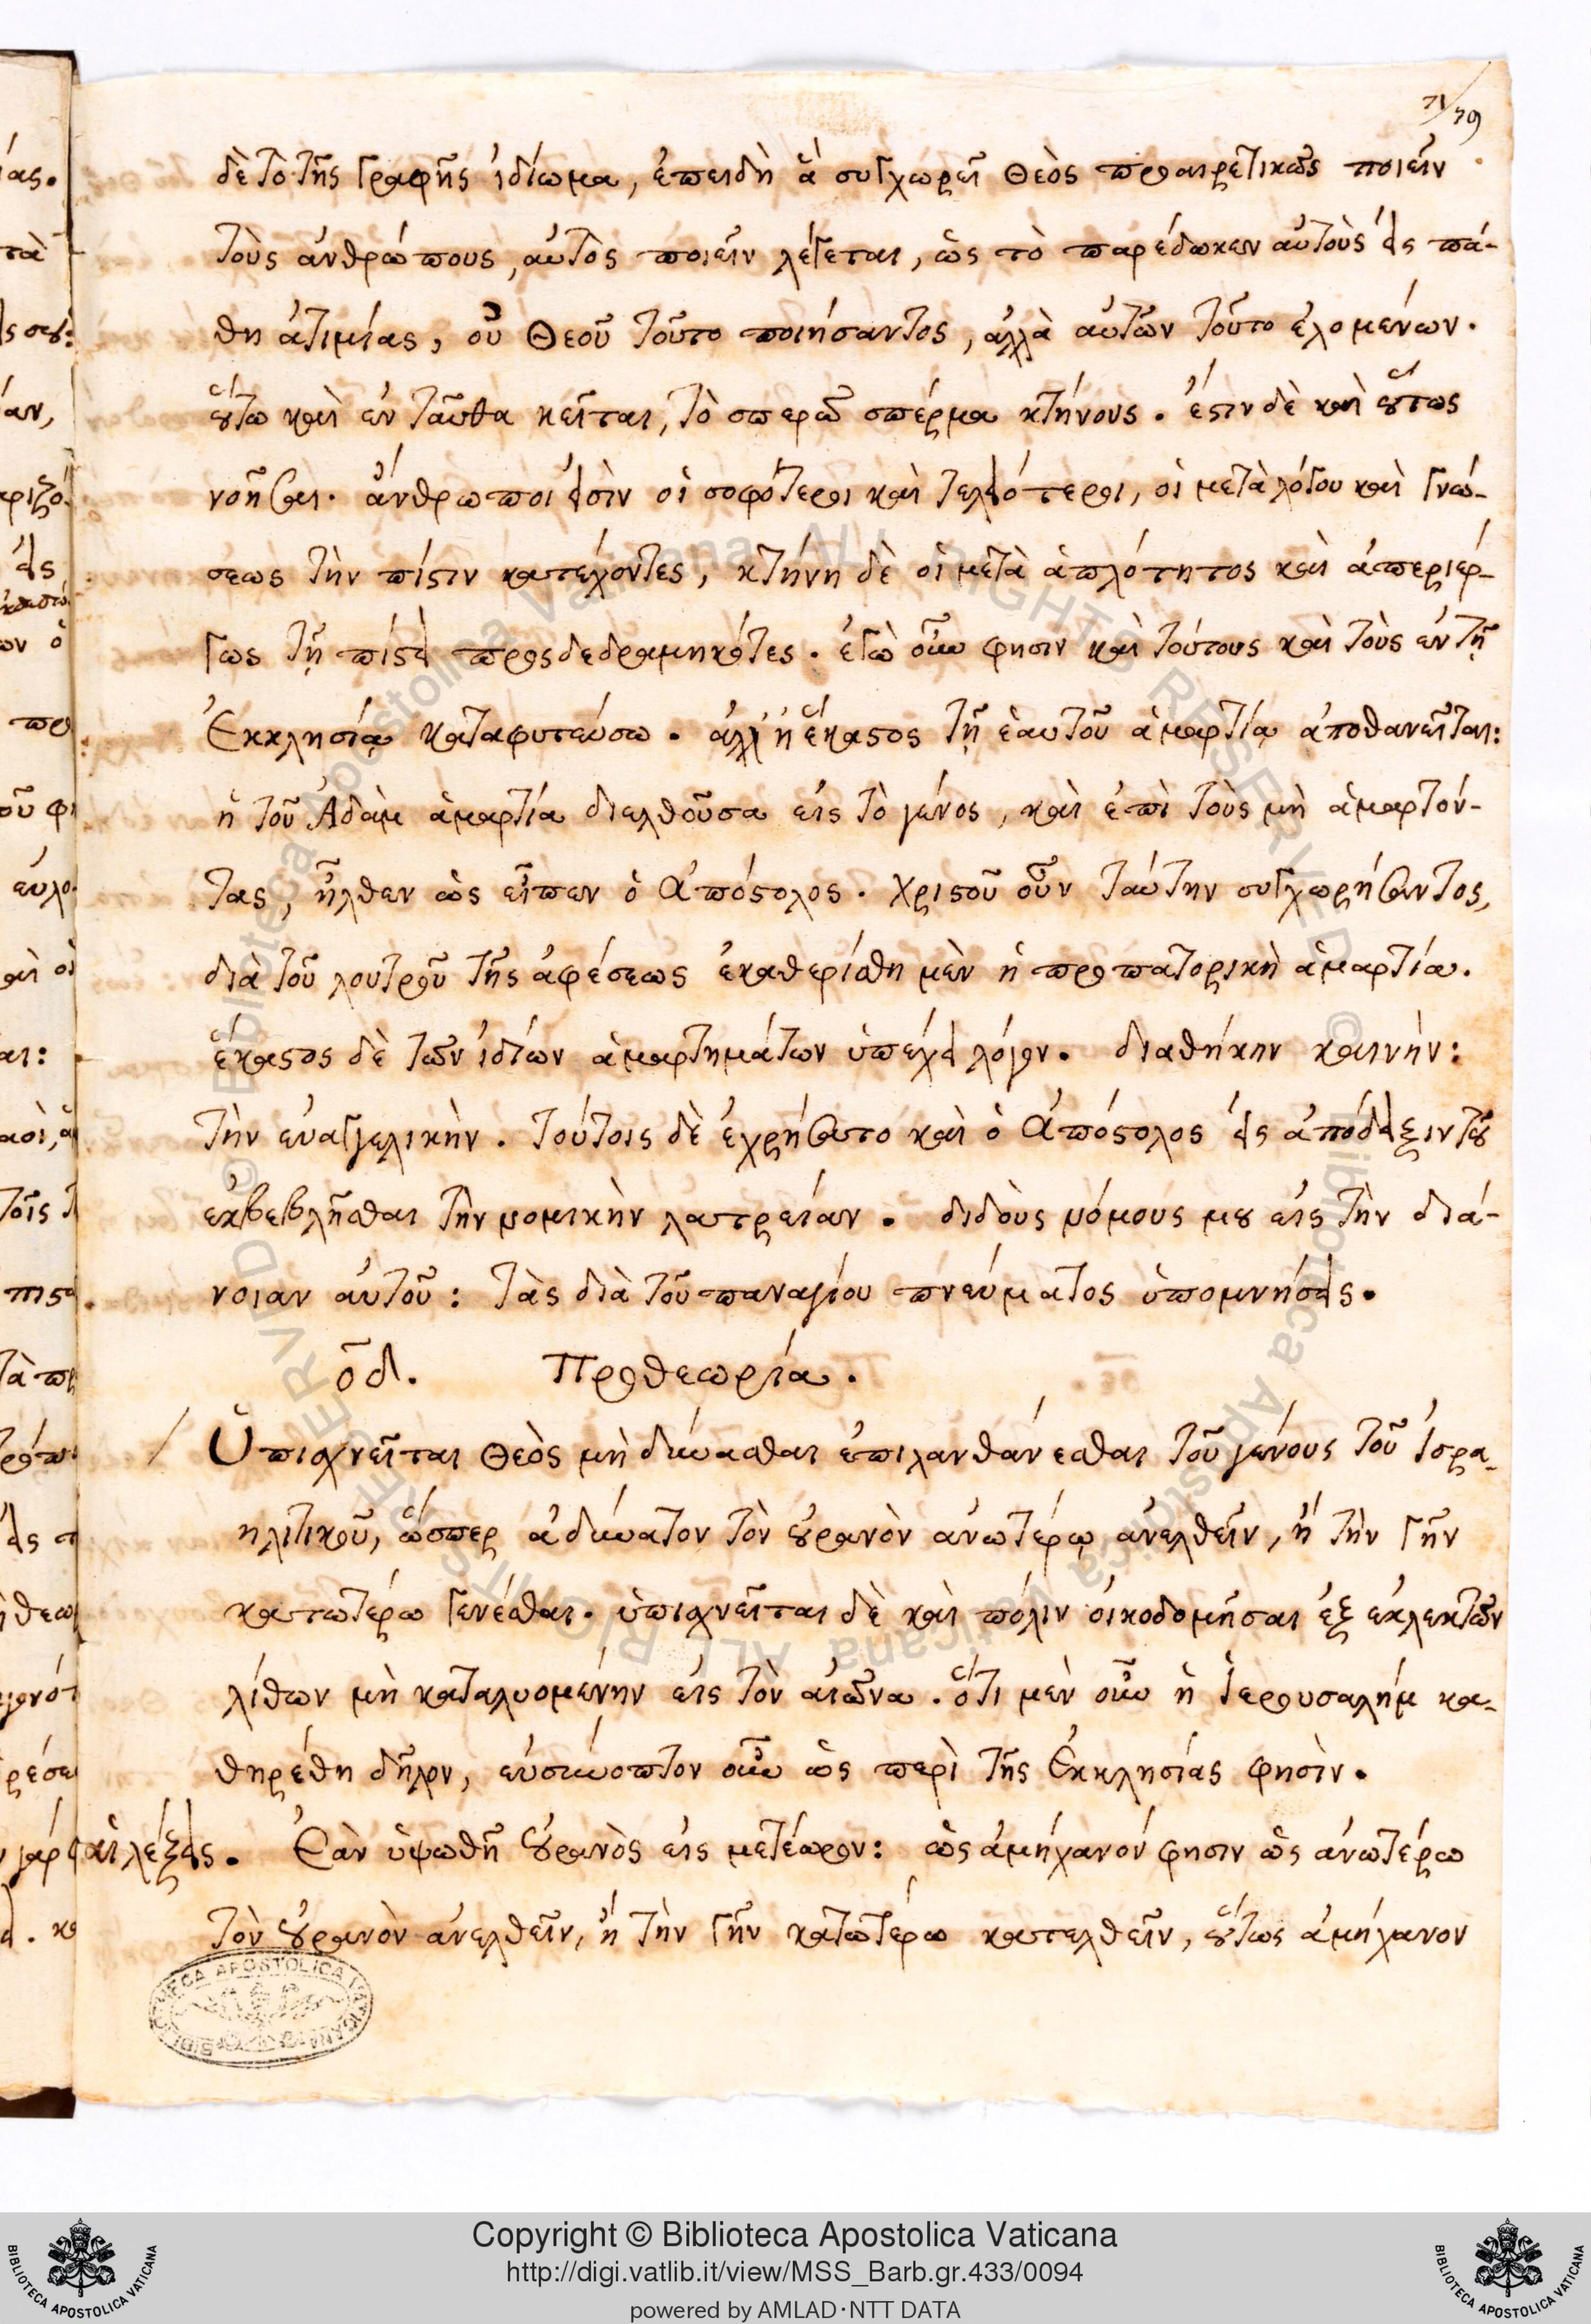 71/79
δὲ τὸ τῆς Γραφῆς ἰδίωμα, ἐπειδὴ ἃ συγχωρεῖ Θεὸς προαιρετικῶς ποιεῖν
τοὺς ἀνθρώπους, αὐτὸς ποιεῖν λέγεται, ὡς τὸ παρέδωκεν αὐτοὺς εἰς πά-
θη ἀτιμίας, οὐ Θεοῦ τοῦτο ποιήσαντος, ἀλλὰ αὐτῶν τοῦτο ἑλομένων.
οὕτω καὶ ἐν ταῦθα κεῖται, τὸ σπερῶ σπέρμα κτήνους. ἔστιν δὲ καὶ οὕτως
νοῆσαι. ἄνθρωποι εἰσὶν οἱ σοφότεροι καὶ τελειότεροι, οἱ μετὰ λόγου καὶ γνώ-
σεως τὴν πίστιν κατέχοντες, κτήνη δὲ οἱ μετὰ ἁπλότητος καὶ ἀπεριέρ-
γως τῇ πίστει προςδεδραμηκότες. ἐγὼ οὖν φησιν καὶ τούτους καὶ τοὺς ἐν τῇ
Ἐκκλησίᾳ καταφυτεύσω. ἀλλ' ἢ ἕκαστος τῇ ἑαυτοῦ ἁμαρτίᾳ ἀποθανεῖται:
ἡ τοῦ Ἀδὰμ ἁμαρτία διελθοῦσα εἰς τὸ γένος, καὶ ἐπὶ τοὺς μὴ ἁμαρτόν-
τας, ἦλθεν ὡς εἶπεν ὁ Ἀπόστολος. Χριστοῦ οὖν ταύτην συγχωρήσαντος,
διὰ τοῦ λουτροῦ τῆς ἀφέσεως ἐκαθερίσθη μὲν ἡ προπατορικὴ ἁμαρτία.
ἕκαστος δὲ τῶν ἰδίων ἁμαρτημάτων ὑπέχει λόγον. διαθήκην καινήν:
τὴν εὐαγγελικὴν. τούτοις δὲ ἐχρήσατο καὶ ὁ Ἀπόστολος εἰς ἀπόδειξιν τοῦ
ἐκβεβλῆσθαι τὴν νομικὴν λατρείαν. διδοὺς νόμους μου εἰς τὴν διά-
νοιαν αὐτοῦ: τὰς διὰ τοῦ παναγίου πνεύματος ὑπομνήσεις.
οδ. Προθεωρία.
Ὑπισχνεῖται Θεὸς μὴ δύνασθαι ἐπιλανθάνεσθαι τοῦ γένους τοῦ Ἰσρα-
ηλιτικοῦ, ὥσπερ ἀδύνατον τὸν οὐρανὸν ἀνωτέρῳ ἀνελθεῖν, ἢ τὴν γῆν
κατωτέρω γενέσθαι. ὑπισχνεῖται δὲ καὶ πόλιν οἰκοδομῆσαι ἐξ ἐκλεκτῶν
λίθων μὴ καταλυομένην εἰς τὸν αἰῶνα. ὅτι μὲν οὖν ἡ Ἱερουσαλήμ κα-
θηρέθη δῆλον, εὐσύνοπτον οὖν ὡς περὶ τῆς Ἐκκλησίας φησὶν.
αἱ λέξεις. Ἐὰν ὑψωθῇ οὐρανὸς εἰς μετέωρον: ὡς ἀμήχανόν φησιν ὡς ἀνωτέρω
τὸν οὐρανὸν ἀνελθεῖν, ἢ τὴν γῆν κατωτέρω κατελθεῖν, οὕτως ἀμήχανον
Copyright © Biblioteca Apostolica Vaticana
http://digi.vatlib.it/view/MSS_Barb.gr.433/0094
powered by AMLAD·NTT DATA
BIBLIOTECA APOSTOLICA VATICANA
BIBLIOTECA APOSTOLICA VATICANA